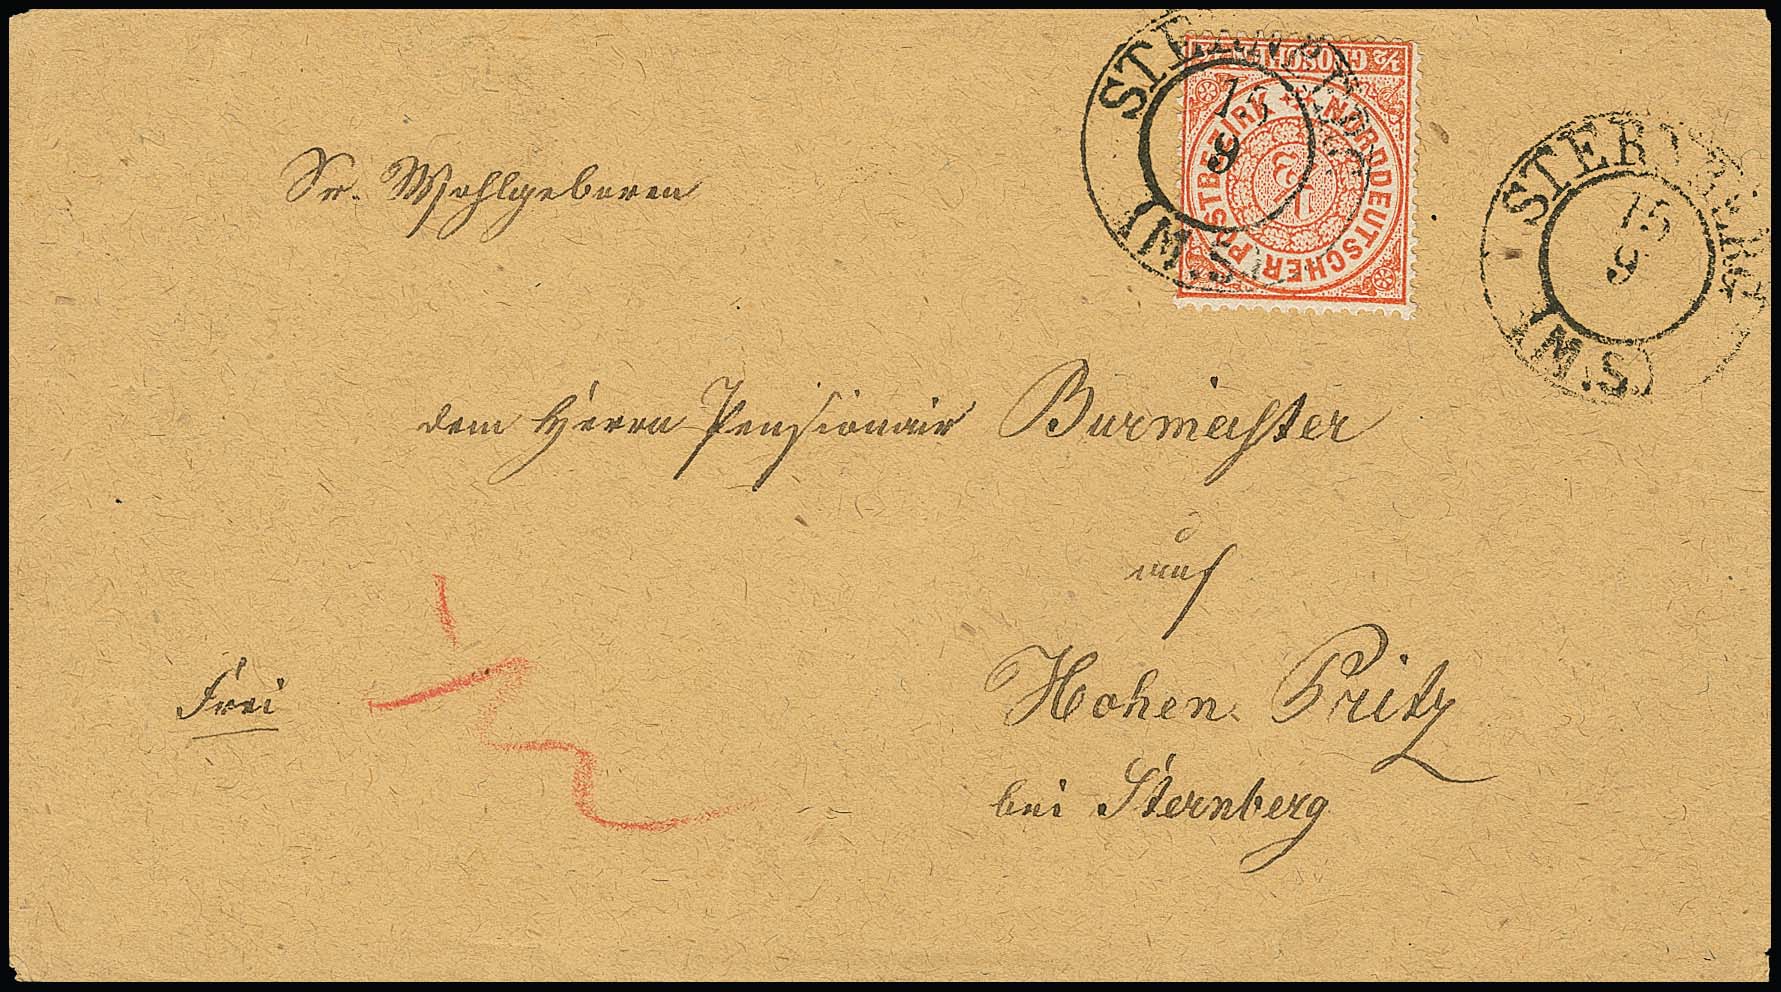 STERNBERG
(M.S.)
15
9
½ GROSCHEN ½
NORDDEUTSCHER POSTBEZIRK
½
STERNBERG
(M.S.)
15
9
Sr. Wohlgeboren
dem Herrn Pensionair Burmeister
auf
Frei
½
Hohen Pritz
bei Sternberg